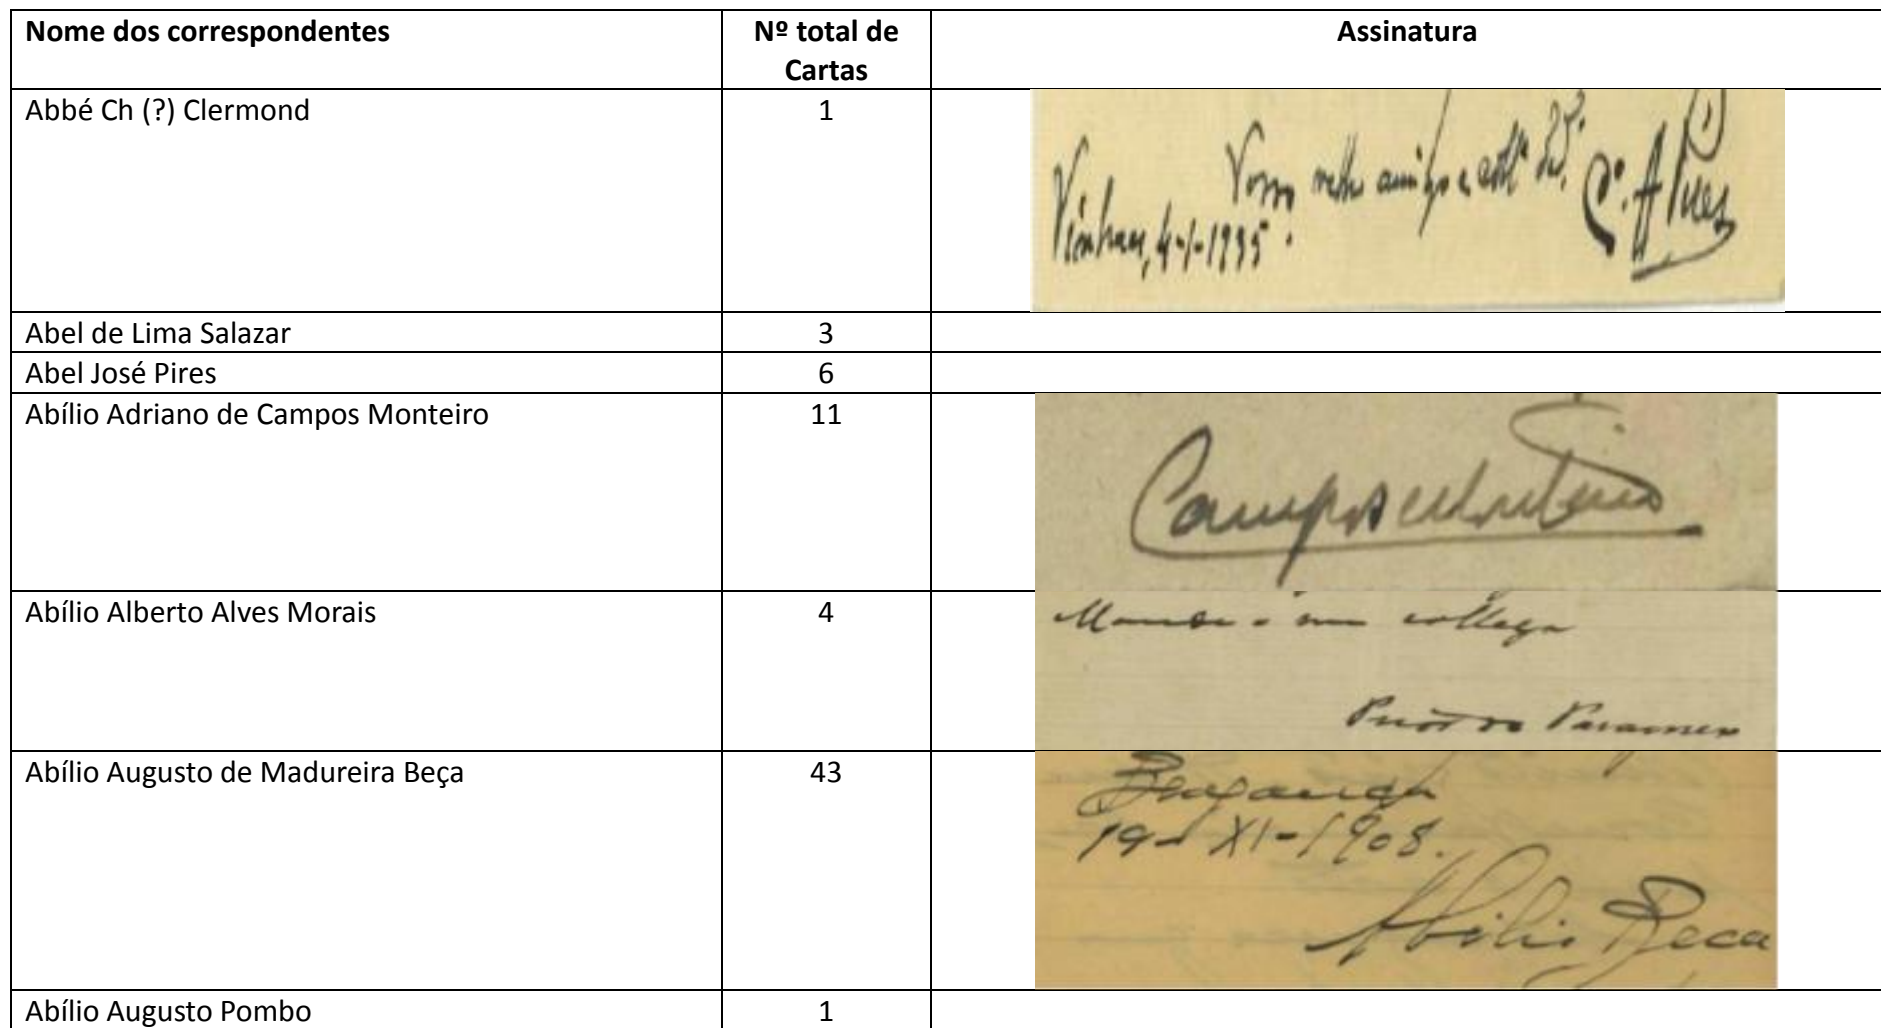 Nome dos correspondentes
Nº total de Cartas
Assinatura
Abbé Ch (?) Clermond
1
Vosso velho amigo e
Vinhaes, 4-1-1935.
Abel de Lima Salazar
3
Abel José Pires
6
Abílio Adriano de Campos Monteiro
11
Campos Monteiro
Abílio Alberto Alves Morais
4
collega
Abílio Augusto de Madureira Beça
43
Bragança
19-XI-1908.
Abilio Beça
Abílio Augusto Pombo
1